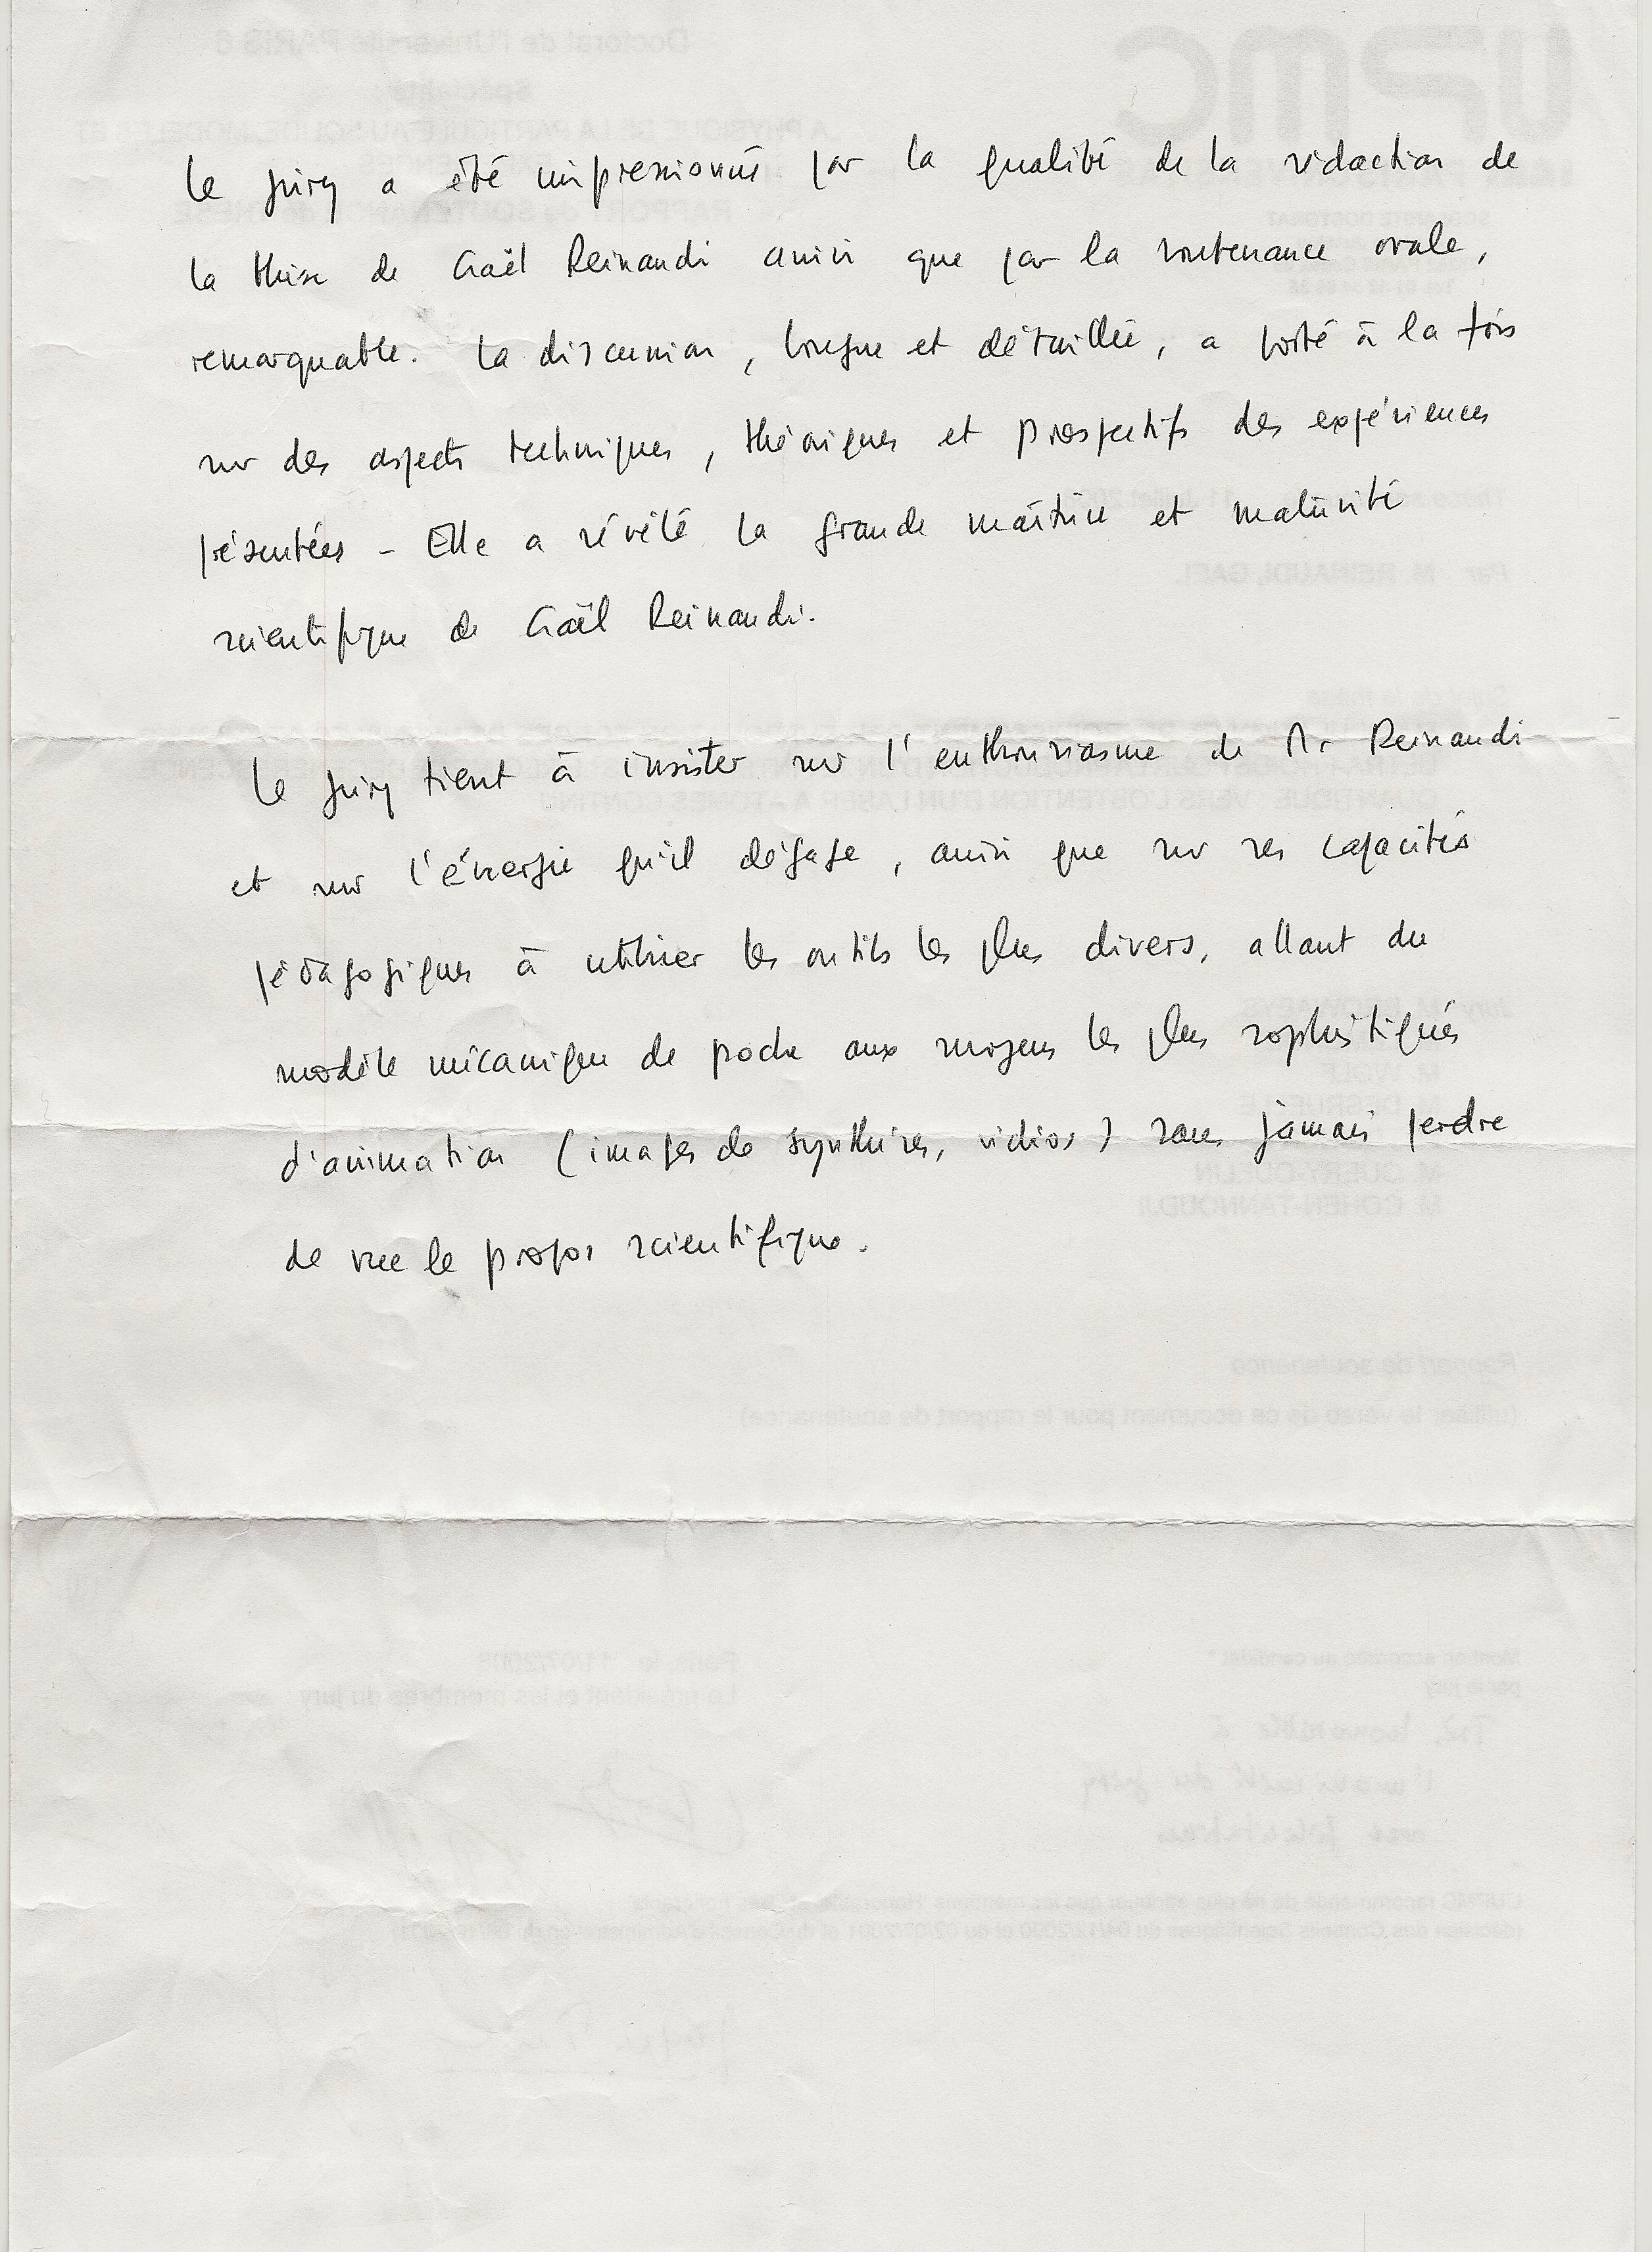 Le jury a été impressionné par la qualité de la rédaction de
la thèse de Gaël Reinaudi ainsi que par la soutenance orale,
remarquable. La discussion, longue et détaillée, a porté à la fois
sur des aspects techniques, théoriques et prospectifs des expériences
présentées - Elle a révélé la grande maîtrise et maturité
scientifique de Gaël Reinaudi.
Le jury tient à insister sur l'enthousiasme de Mr Reinaudi
et sur l'énergie qu'il dégage, ainsi que sur ses capacités
pédagogiques à utiliser les outils les plus divers, allant du
modèle mécanique de poche aux moyens les plus sophistiqués
d'animation (images de synthèses, vidéos) sans jamais perdre
de vue le propos scientifique.